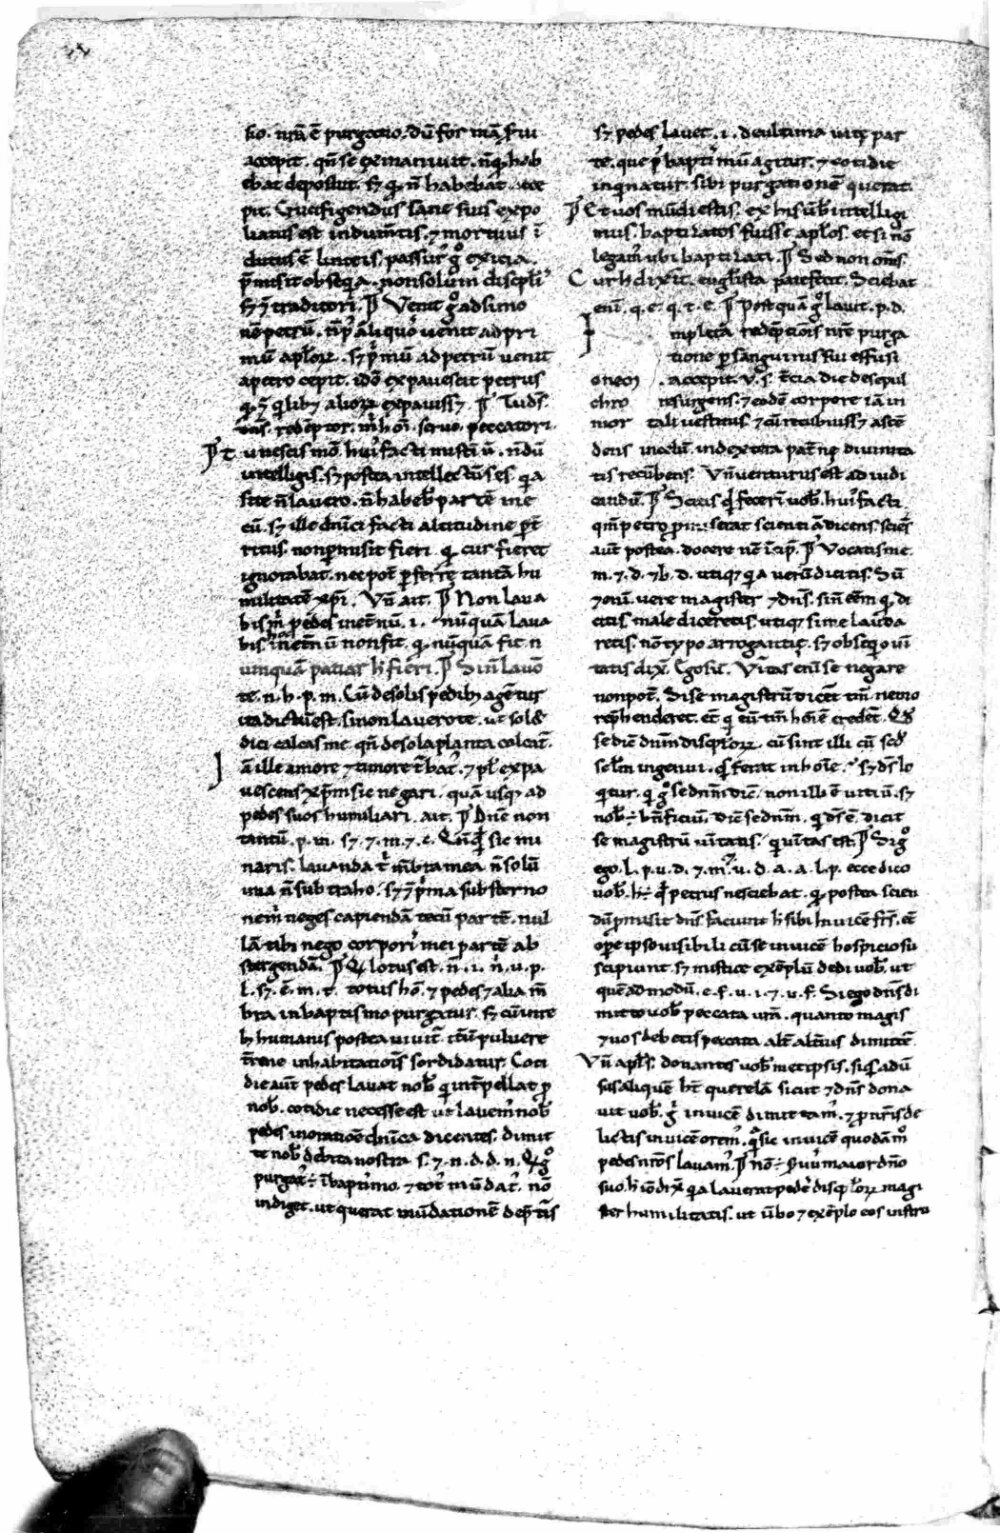 sio. nr̄a ē purgatio. dū for mā s̄ui
accepit. qn̄ se exinaniuit. n̄ q̄ hab
ebat deposuit. sꝫ q̄ n̄ habebat. acce
pit. Crucifigendus sane suis expo
liatus est indum̄tis. ⁊ mortuus ī
dutus ē linteis. passur᾽ gͦ exicia.
p̄misit obseq̄a. non solum discipl̄is
sꝫ ⁊ traditori. ¶ Venit gͦ ad simo
nē petrū.
mū apl̄oꝝ. sꝫ p̄mū ad petrū uenit
a petro cepit. idō expauescit petrus
q̄ ⁊ q̄libꝫ alioꝝ expauissꝫ. ¶ Tu dn̄s
redēptor. m̄ hoī. seruo. peccatori.
tu nescis mō. hui᾽ facti misti ū. n̄dū
intelligis. sꝫ postea intellectus es. q̄a
si te n̄ lauero. n̄ habeb᾽ partē me
cū. sꝫ ille dn̄ici facti altitudine p̄t
ritus. non p̄misit fieri. q̄ cur fieret
ignorabat. nec pot᾽ ꝑferre tantā hu
militatē xp̄i. Vn̄ ait. ¶ Non laua
bis m᾽ pedes inet᾽nū. i. nūquā laua
bis. hoc inet᾽nū non fit. q̄ nūquā fit. n
umquā patiar h̄ fieri. ¶ Si n̄ lauō
te. n. h. p. m. Cū de solis pedibꝫ agētur
ita dictū est. si non lauero te. ut sol&
dici calcas me. qn̄ de sola planta calcat᾽.
ā ille amore ⁊ timore t᾽bat᾽. ⁊ pl᾽ expa
uescens xp̄m sic negari. quā usq̄ ad
pedes suos humiliari. ait. ¶ Dn̄e non
tantū. p. m. sꝫ. ⁊. m. ⁊. c. Qn̄q̄ sic mi
naris. lauanda t᾽ m̄bra mea. n̄ solū
ima n̄ subtraho. sꝫ ⁊ p̄ma substerno
ne m᾽ neges capiendā tecū partē. nul
lā tibi nego corpori᾽ mei partē ab
stergendā. ¶ Q̄ lotus est. n̄. i. n᾽. u. p.
l. sꝫ. ē. m. t. totus hō. ⁊ pedes ⁊ alia m̄
bra in baptismo purgātur. sꝫ cū inte
h humanis postea uiuit᾽. it᾽ū puluere
t᾽rene inhabitatiōis sordidatur. Coti
die aūt pedes lauat nob᾽ q̄ int᾽pellat p̄
nob᾽. cotidie necesse est ut lauem᾽ nob᾽
pedes in oratiōe dn̄ica dicentes. dimit
te nob᾽ debita nostra. s. ⁊. n. d. d. n. Q̄ gͦ
purgat᾽ ÷ ī baptimo. ⁊ tot᾽ mūdat᾽. nō
indiget. ut querat mūdationē dep̄tis
sꝫ pedes lauet. i. de ultima uitę par
te. que p᾽ baptimū agitur. ⁊ cotidie
inqinatur. sibi purgationē querat.
¶ Et uos mūdi estis. ex his ūb᾽ intelligi
mus. baptizatos fuisse apl̄os. etsi nō
legam᾽ ubi baptizati. ¶ Sed non om̄s.
Cur h̄ dixit᾽. euḡlista patefecit. Sciebat
eni᾽. q. e. q. t. e. ¶ Postquā gͦ lauit. p. d.
Impletā redēptiois nr̄e purga
tione ꝑ sanguinis sui effusi
onem. accepit. V. s. t᾽cia die de sepul
chro resurgens. ⁊ eodē corpore iā in
mor tali uestitus. ⁊ cū recubuissꝫ ascē
dens in celū. in dextera pat᾽ne diuinita
tis recūbens. Vn̄ uenturus est ad iudi
candū. ¶ Scitis q̄ fecerī uob᾽. hui᾽ facti
qm̄ petro promiserat scientiā dicens. scies
aūt postea. docere nc̄ īcip̄. ¶ Vocatis me.
m. ⁊. d. ⁊ b. d. utiq̄ q̄a uerū dicitis. Sū
⁊ enī. uere magister ⁊ dn̄s. si n̄ eēm q̄ di
citis. male diceretis. utiq̄ si me lauda
retis. nō typo arrogantię. sꝫ obseq̄o ui
tatis dix᾽. Ego sū. V᾽itas eni᾽ se negare
non pot᾽. Si se magistrū dicēt tm̄. nemo
rep̄henderet. et᾽ q̄ cū tm̄ hōiē credēt. Q&
se diē dnm̄ discip̄loꝝ. cū sint illi cū sed᾽
sel̄m ingenui. q̄s ferat in hoīe. sꝫ ds̄ lo
q̄tur. q̄ gͦ se dnm̄ diē. non illi ē uitiū. sꝫ
nob᾽ ÷ bn̄ficiū. diē se dnm̄. q̄ ds̄ ē. dicit
se magistrū u᾽itatis. q̄ u᾽itas est. ¶ Si gͦ
ego. l. p. u. d. ⁊. m. ⁊ u. d. a. a. l. p. ecce dico
uob᾽. h̄ ÷ q̄ petrus nesciebat. q̄ postea scien
dū p̄misit dn̄s. faciunt h̄ sibi inuicē fr̄s. et᾽
ope ipso uisibili cū se inuicē hospicio su
scipiunt. sꝫ mistice exēplū dedi uob᾽. ut
quē ad modū. e. f. u. i. ⁊. u. f. Si ego dn̄s di
mitto uob᾽ peccata ur̄a. quanto magis
⁊ uos debetis peccata alt᾽ alt᾽ius dimittē.
Vn̄ apl̄s. donantes uob᾽ metipsis. si q̄s adū
sus aliquē h̄t querelā sicut ⁊ dn̄s dona
uit uob᾽. g᾽ inuicē dimittam᾽. ⁊ ꝓ nr̄is de
lictis inuicē orem᾽. q̄ sic inuicē quodā mͦ
pedes nr̄os lauam᾽. ¶ Nō ÷ s̄uū maior dn̄o
suo. h̄ iō dix᾽ q̄a lauerat pedes disciploꝝ magi
ster humilitatis. ut ūbo ⁊ exēplo eos instru